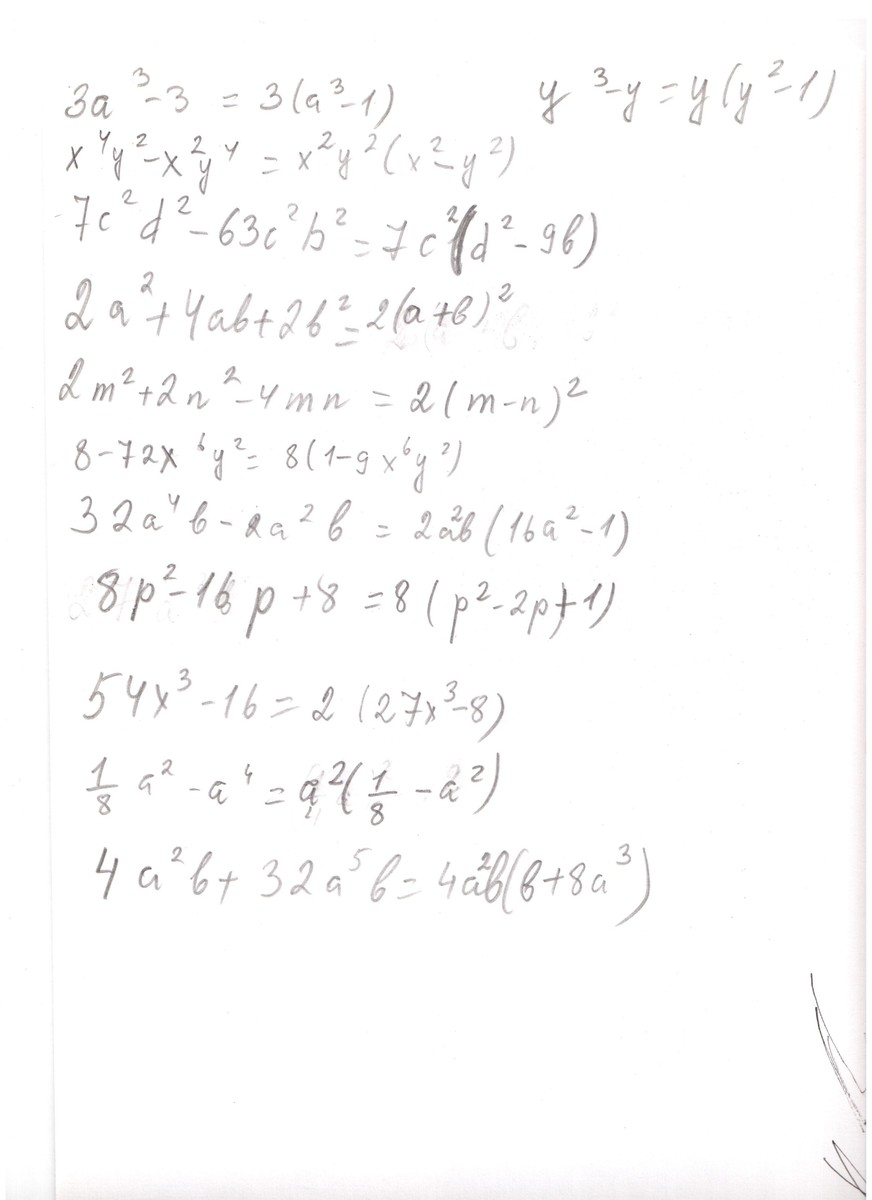 3a³-3 = 3(a³-1) y³-y = y(y²-1)
x⁴y²-x²y⁴ = x²y²(x²-y²)
7c²d²-63c²b² = 7c²(d²-9b)
2a²+4ab+2b² = 2(a+b)²
2m²+2n²-4mn = 2(m-n)²
8-72x⁶y² = 8(1-9x⁶y²)
32a⁴b-2a²b = 2a²b(16a²-1)
8p²-16p+8 = 8(p²-2p+1)
54x³-16 = 2(27x³-8)
1/8 a²-a⁴ = a²(1/8-a²)
4a²b+32a⁵b = 4a²b(b+8a³)